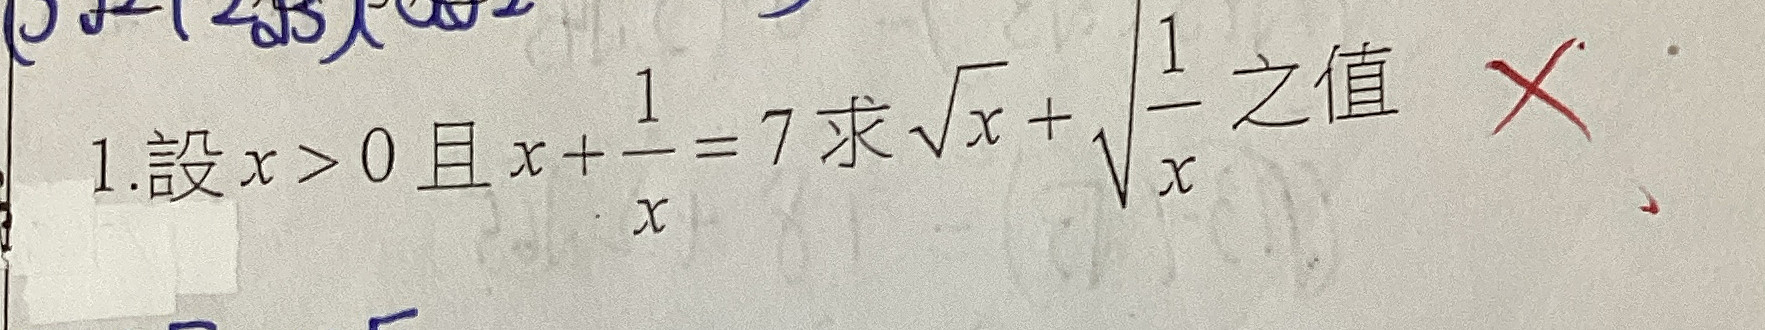 1.設 x > 0 且 x + 1/x = 7 求 √x + √(1/x) 之值